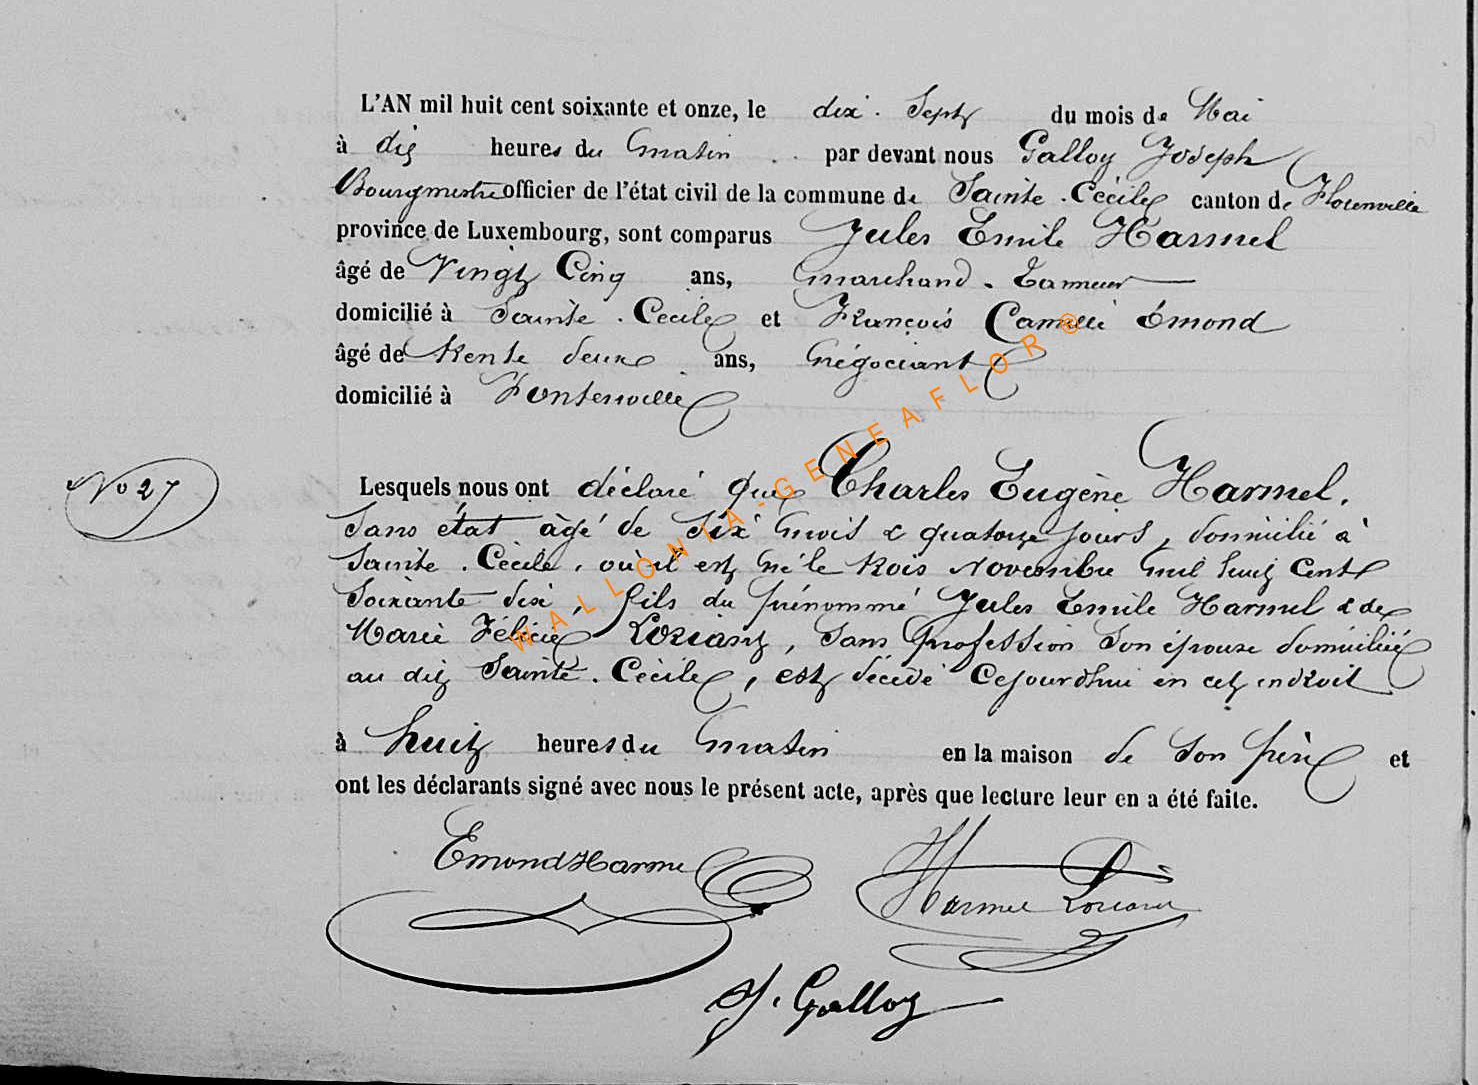 L'AN mil huit cent soixante et onze, le dix-Sept du mois de Mai
à dix heures du matin par devant nous Galloy Joseph
Bourgmestre officier de l'état civil de la commune de Sainte-Cécile canton de Florenville
province de Luxembourg, sont comparus Jules Emile Harmel
âgé de Vingt Cinq ans, marchand-Tanneur
domicilié à Sainte-Cecile et François Camille Émond
âgé de trente deux ans, négociant
domicilié à Fontenoille
No 27
Lesquels nous ont déclaré que Charles Eugène Harmel,
Sans état âgé de Six mois & quatorze jours, domicilié à
Sainte-Cécile, où il est né le trois Novembre mil huit Cent
Soixante dix, fils du prénommé Jules Emile Harmel & de
Marie Félicie Loriant, Sans profession Son épouse domiciliée
au dit Sainte-Cécile, est décédé Cejourd'hui en cet endroit
à huit heures du matin en la maison de Son père et
ont les déclarants signé avec nous le présent acte, après que lecture leur en a été faite.
Emond Harmel
Harmel Loriant
J. Galloy
WALLONIA-GENEAFLOR®